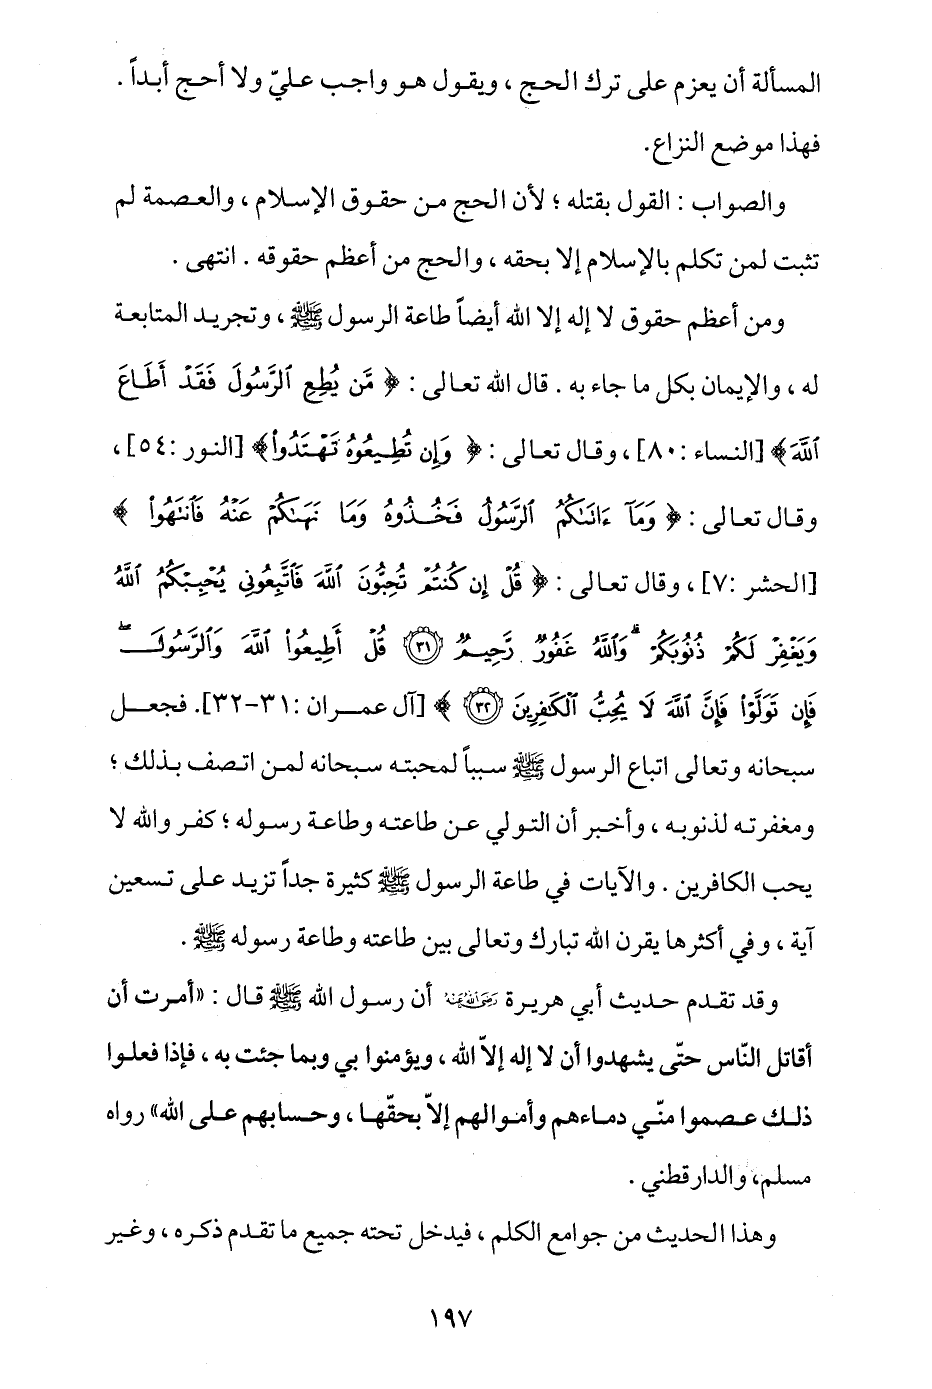 المسألة أن يعزم على ترك الحج ، ويقول هو واجب عليّ ولا أحج أبداً .
فهذا موضع النزاع.
والصواب : القول بقتله ؛ لأن الحج من حقوق الإسلام ، والعصمة لم
تثبت لمن تكلم بالإسلام إلا بحقه ، والحج من أعظم حقوقه . انتهى .
ومن أعظم حقوق لا إله إلا الله أيضاً طاعة الرسول ﷺ ، وتجريد المتابعة
له ، والإيمان بكل ما جاء به . قال الله تعالى : ﴿ مَّن يُطِعِ ٱلرَّسُولَ فَقَدۡ أَطَاعَ
ٱللَّهَ ﴾ [النساء : ٨٠] ، وقال تعالى : ﴿ وَإِن تُطِيعُوهُ تَهۡتَدُواْ ﴾ [النور : ٥٤] ،
وقال تعالى : ﴿ وَمَآ ءَاتَىٰكُمُ ٱلرَّسُولُ فَخُذُوهُ وَمَا نَهَىٰكُمۡ عَنۡهُ فَٱنتَهُواْ ﴾
[الحشر : ٧] ، وقال تعالى : ﴿ قُلۡ إِن كُنتُمۡ تُحِبُّونَ ٱللَّهَ فَٱتَّبِعُونِي يُحۡبِبۡكُمُ ٱللَّهُ
وَيَغۡفِرۡ لَكُمۡ ذُنُوبَكُمۡۗ وَٱللَّهُ غَفُورٞ رَّحِيمٞ ﴿٣١﴾ قُلۡ أَطِيعُواْ ٱللَّهَ وَٱلرَّسُولَۖ
فَإِن تَوَلَّوۡاْ فَإِنَّ ٱللَّهَ لَا يُحِبُّ ٱلۡكَٰفِرِينَ ﴿٣٢﴾ ﴾ [آل عمران : ٣١-٣٢]. فجعل
سبحانه وتعالى اتباع الرسول ﷺ سبباً لمحبته سبحانه لمن اتصف بذلك ؛
ومغفرته لذنوبه ، وأخبر أن التولي عن طاعته وطاعة رسوله ؛ كفر والله لا
يحب الكافرين . والآيات في طاعة الرسول ﷺ كثيرة جداً تزيد على تسعين
آية ، وفي أكثرها يقرن الله تبارك وتعالى بين طاعته وطاعة رسوله ﷺ .
وقد تقدم حديث أبي هريرة رضي الله عنه أن رسول الله ﷺ قال : «أمرت أن
أقاتل النّاس حتّى يشهدوا أن لا إله إلاّ الله ، ويؤمنوا بي وبما جئت به ، فإذا فعلوا
ذلك عصموا منّي دماءهم وأموالهم إلاّ بحقّها ، وحسابهم على الله» رواه
مسلم، والدارقطني .
وهذا الحديث من جوامع الكلم ، فيدخل تحته جميع ما تقدم ذكره ، وغير
١٩٧